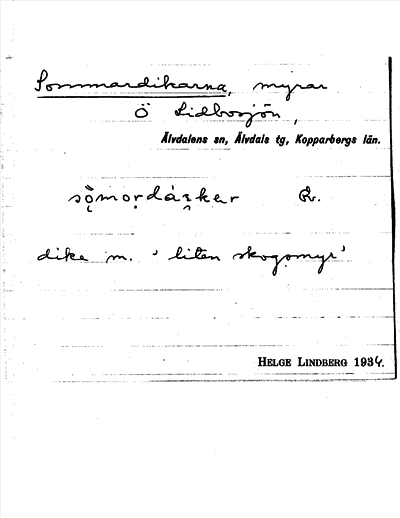 Sommardikarna, myrar
Ö Lidbosjön,
Älvdalens sn, Älvdals tg, Kopparbergs län.
sǫ̈mọrdásker R.
dike m. 'liten skogsmyr'
HELGE LINDBERG 1934.